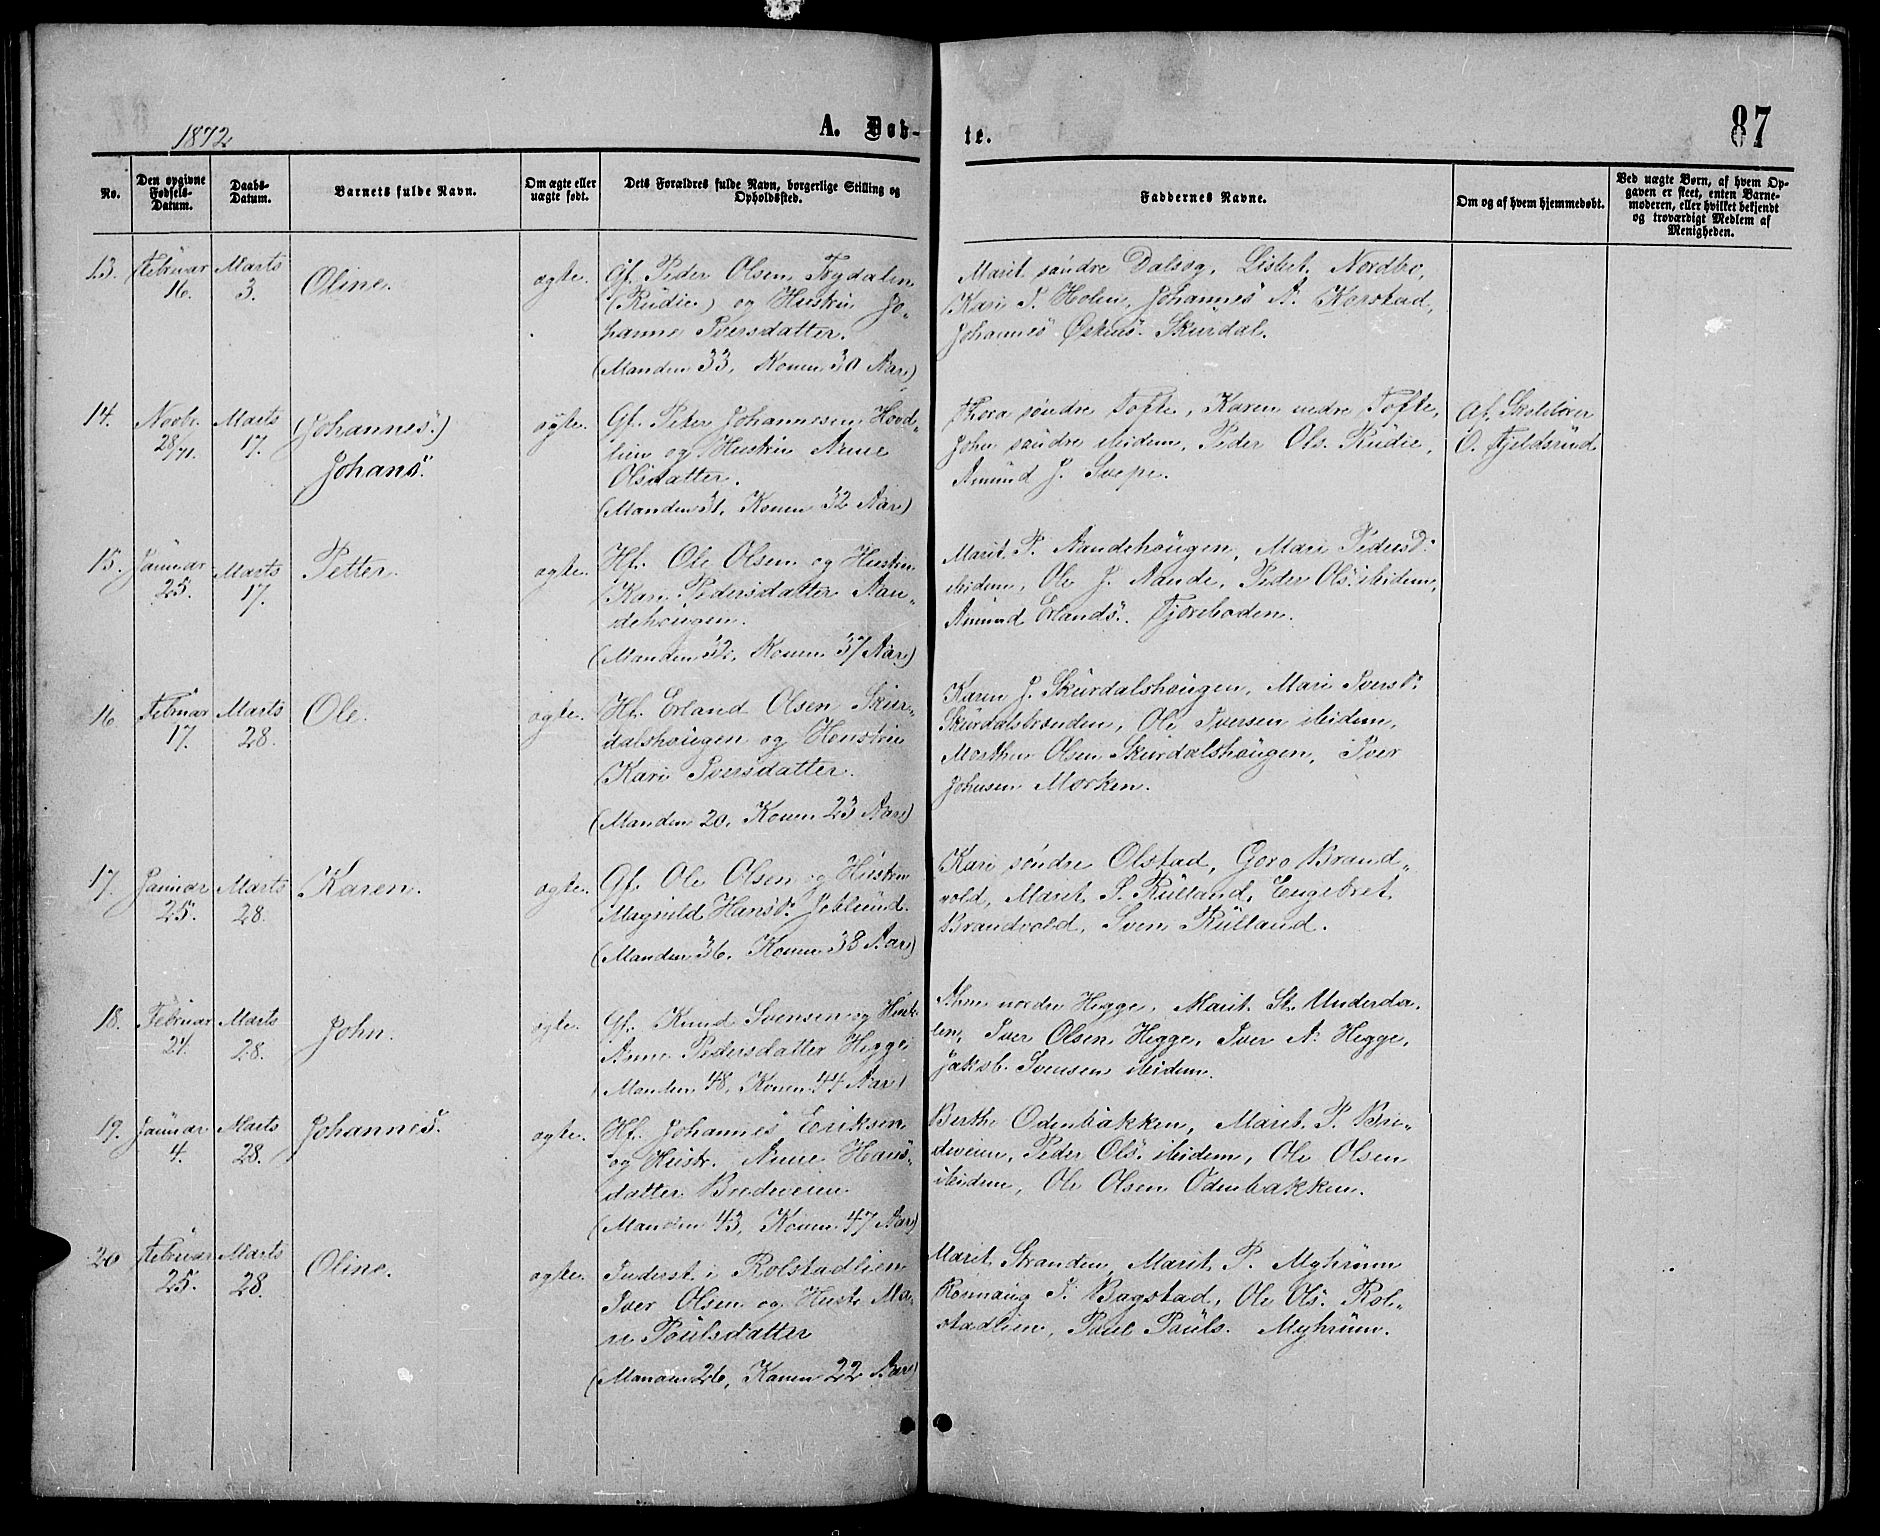 1872
A. Döb-
te.
87
No.
Den opgivne
Fødsels-
Datum.
Daabs-
Datum.
Barnets fulde Navn.
Om ægte eller
uægte født.
Dets Forældres fulde Navn, borgerlige Stilling og
Opholdssted.
Faddernes Navne.
Om og af hvem hjemmedøbt.
Ved uægte Børn, af hvem Op-
gaven er skeet, enten Barne-
moderen, eller hvilket bekjendt
og troværdigt Medlem af
Menigheden.
13.
Februar
16.
Marts
3.
Oline.
ægte.
Gf. Peder Olsen
(Rudie) og Hustru Jo-
hanne Iversdatter.
(Manden 33, Konen 30 Aar)
Marit søndre Dalseg, Lisbet Nordbo,
Kari P. Holen, Johannes A. Korstad,
Johannes Skurdal.
14.
Novbr.
28/71.
Marts
17.
(Johannes.)
Johans.
ægte.
Gf. Peter Johannesen Hovd-
lien og Hustru Anne
Olsdatter.
(Manden 31, Konen 32 Aar)
Thora søndre Tofte, Karen nedre Tofte,
John søndre ibidem, Peder Ols. Rudie,
Amund J. Svepe.
Af Skolelærer
O. Fjeldsrud
15.
Januar
25.
Marts
17.
Petter.
ægte.
Hf. Ole Olsen og Hustru
Kari Pedersdatter Aan-
dehougen.
(Manden 32, Konen 37 Aar)
Marit P. Aandehougen, Mari Pedersd.
ibidem, Ole J. Aande, Peder Ols. ibidem,
Amund Erlands.
16
Februar
17.
Marts
28.
Ole.
ægte.
Hf. Erland Olsen Skur-
dalshougen og Houstru
Kari Iversdatter.
(Manden 20, Konen 23 Aar)
Karen J. Skurdalshougen, Mari Iversd.
Skurdalsbrænden, Ole Iversen ibidem,
Morthen Olsen Skurdalshougen, Iver
Johnsen Morken.
17.
Januar
25.
Marts
28.
Karen.
ægte.
Gf. Ole Olsen og Hustru
Magnild Hansd.
(Manden 36, Konen 38 Aar)
Kari søndre Olstad, Goro Brand-
vold, Marit S. Rulland, Engebret
Brandvold, Sven Rulland.
18.
Februar
21.
Marts
28.
John.
ægte.
Gf. Knud Svensen og Hust.
Anne Pedersdatter Hegge
(Manden 48, Konen 44 Aar)
Anne nordre Hegge, Marit St. Underda-
len, Iver Olsen Hegge, Iver A. Hegge,
Jakob Svensen ibidem.
19.
Januar
4.
Marts
28.
Johannes.
ægte.
Hf. Johannes Eriksen
og Hustr. Anne Hans-
datter Bredeveien
(Manden 43, Konen 47 Aar)
Berthe Odenbakken, Marit P. Bre-
deveien, Peder Ols. ibidem, Ole Olsen
ibidem, Ole Olsen Odenbakken.
20
Februar
25.
Marts
28.
Oline.
ægte.
Inderst i Rolstadlien
Iver Olsen og Hustr. Ma-
ri Poulsdatter
(Manden 26, Konen 22 Aar)
Marit Stranden, Marit P. Myhrum
Rønnaug I. Bagstad, Ole Ols. Rol-
stadlien, Poul Pouls. Myhrum.